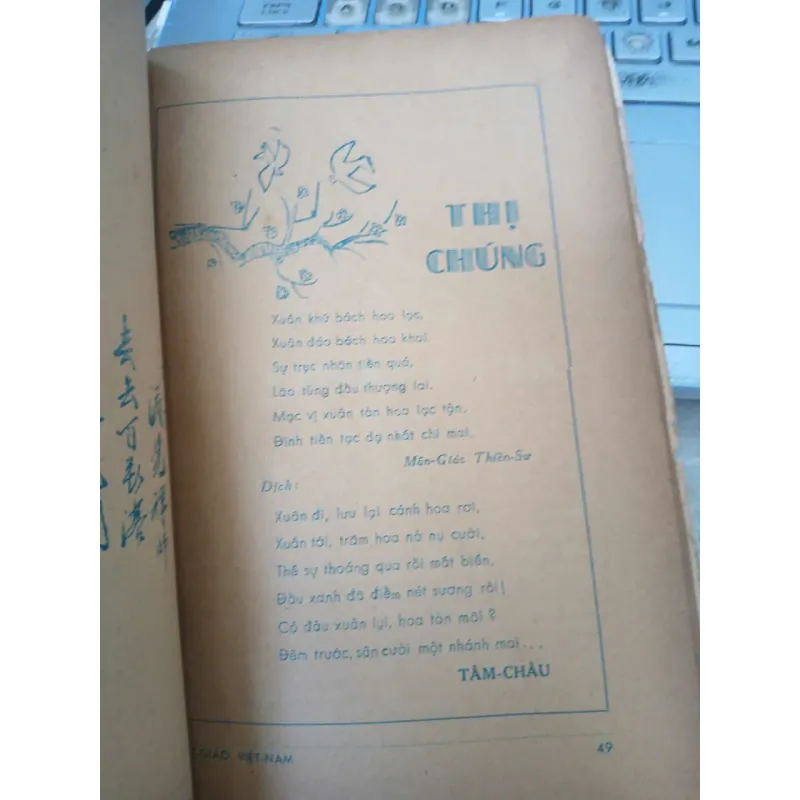 THỊ
CHÚNG
Xuân khứ bách hoa lạc,
Xuân đáo bách hoa khai.
Sự trục nhãn tiền quá,
Lão tùng đầu thượng lai,
Mạc vị xuân tàn hoa lạc tận,
Đình tiền tạc dạ nhất chi mai.
Mãn-Giác Thiền-Sư
Dịch:
Xuân đi, lưu lại cánh hoa rơi,
Xuân tới, trăm hoa nở nụ cười,
Thế sự thoáng qua rồi mất biến,
Đầu xanh đã điểm nét sương rồi!
Có đâu xuân lụi, hoa tàn mãi?
Đêm trước, sân cười một nhánh mai...
TÂM-CHÂU
GIÁO VIỆT-NAM
49